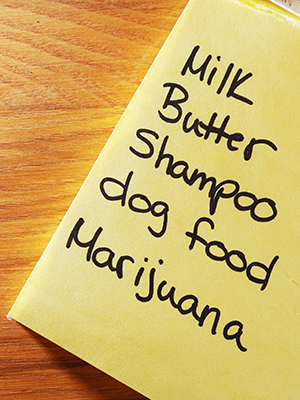 Milk
Butter
Shampoo
dog food
Marijuana